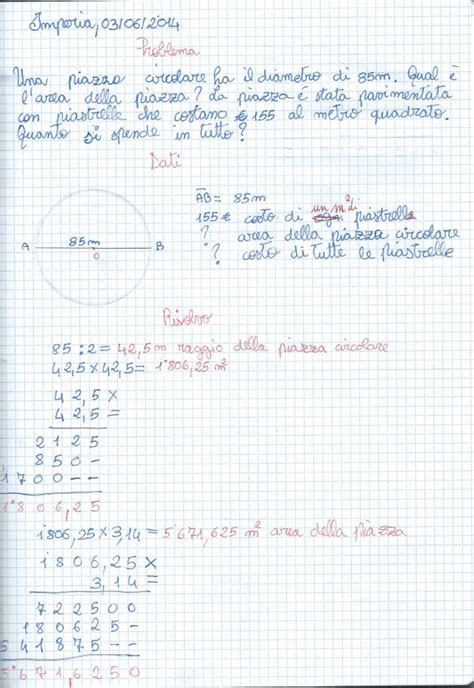 Imperia, 03/06/2014
Problema
Una piazza circolare ha il diametro di 85m. Qual è
l'area della piazza? La piazza è stata pavimentata
con piastrelle che costano € 155 al metro quadrato.
Quanto si spende in tutto?
Dati
AB = 85m
155 € costo di un m² di piastrella
? area della piazza circolare
? costo di tutte le piastrelle
A 85m B
O
Risolvo
85 : 2 = 42,5 m raggio della piazza circolare
42,5 × 42,5 = 1˙806,25 m²
42,5 ×
42,5 =
2125
850–
1700––
1˙806,25
1806,25 × 3,14 = 5˙671,625 m² area della piazza
1806,25 ×
3,14 =
722500
180625–
541875––
5˙671,6250